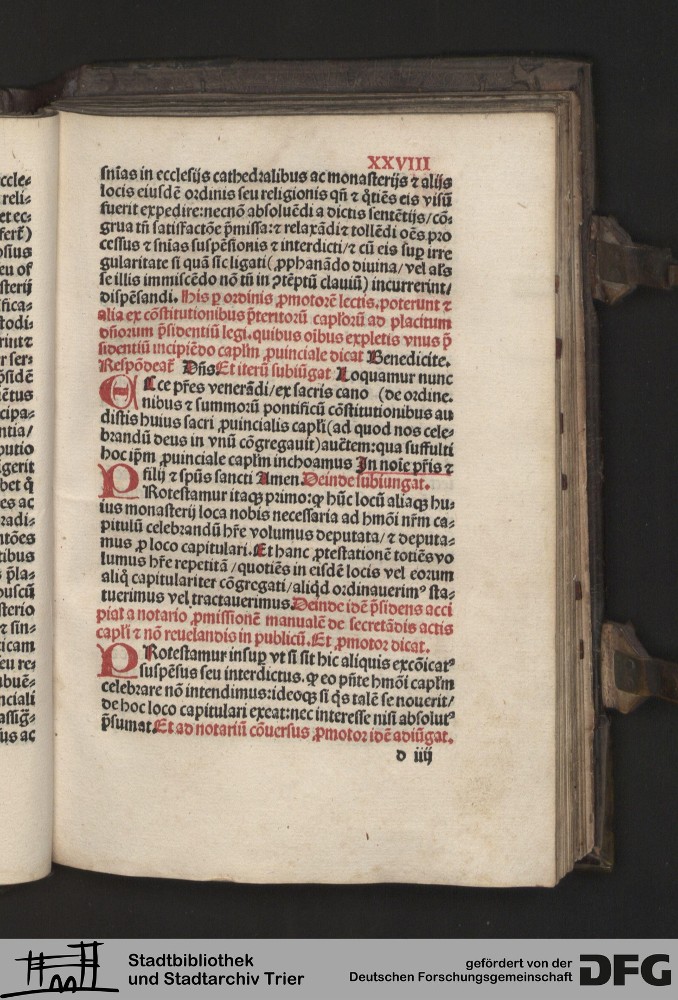 XXVIII
sn̄ias in ecclesijs cathedralibus ac monasterijs ⁊ alijs
locis eiusdē ordinis seu religionis qn̄ ⁊ q̄tiēs eis visū
fuerit expedire: necnō absoluēdi a dictis sentētijs / cō-
grua tn̄ satisfactōe p̄missa: ⁊ relaxādi ⁊ tollēdi oēs pro
cessus ⁊ sn̄ias suspēsionis ⁊ interdicti / ⁊ cū eis suꝑ irre
gularitate si quā sic ligati (ꝓphanādo diuina / vel al's
se illis immiscēdo nō tn̄ in ꝯtēptū clauiū) incurrerint /
dispēsandi. His ꝑ ordinis ꝓmotorē lectis. poterunt ⁊
alia ex cōstitutionibus p̄teritorū capl'orū ad placitum
dn̄orum p̄sidentiū legi. quibus oībus expletis vnus p̄
sidentiū incipiēdo capl'm ꝓuinciale dicat Benedicite.
Respōdeat᷑ Dn̄s Et iterū subiūgat Loquamur nunc
ECce pr̄es venerādi / ex sacris cano (de ordine.
nibus ⁊ summorū pontificū cōstitutionibus au
distis huius sacri ꝓuincialis capl'i (ad quod nos cele-
brandū deus in vnū cōgregauit) auc̄tem: qua suffulti
hoc ip̄m ꝓuinciale capl'm inchoamus In noīe pr̄is ⁊
filij ⁊ sp̄us sancti Amen. Deinde subiungat.
PRotestamur itaqꝫ primo: ꝙ hūc locū aliaqꝫ hu-
ius monasterij loca nobis necessaria ad hmōi nr̄m ca-
pitulū celebrandū hr̄e volumus deputata / ⁊ deputa-
mus ꝓ loco capitulari. Et hanc ꝓtestationē totiēs vo
lumus hr̄e repetitā / quotiēs in eisdē locis vel eorum
aliq̄ capitulariter cōgregati / aliqd̄ ordinauerimꝰ sta-
tuerimus vel tractauerimus. Deinde idē p̄sidens acci
piat a notario ꝓmissionē manualē de secretādis actis
capl'i ⁊ nō reuelandis in publicū. Et ꝓmotor dicat.
PRotestamur insuꝑ vt si sit hic aliquis excōicatꝰ
suspēsus seu interdictus. ꝙ eo pn̄te hmōi capl'm
celebrare nō intendimus: ideoqꝫ si q̄s talē se nouerit /
de hoc loco capitulari exeat: nec interesse nisi absolutꝰ
p̄sumat. Et ad notariū cōuersus ꝓmotor idē adiūgat.
d iiij
ccle-
reli-
et ec-
fert̄)
osius
eu of
sterij
ifica-
todi-
rint⁊
r ser-
p̄sidē
uētus
cipa-
ntia /
putio
igerit
bet q̄
es ac
radi-
ntōes
tibus
s p̄la-
buscū
sterio
⁊ sin-
ticam
eu re-
ubuē-
nciali
assig-
us ac
Stadtbibliothek
und Stadtarchiv Trier
gefördert von der
Deutschen Forschungsgemeinschaft
DFG